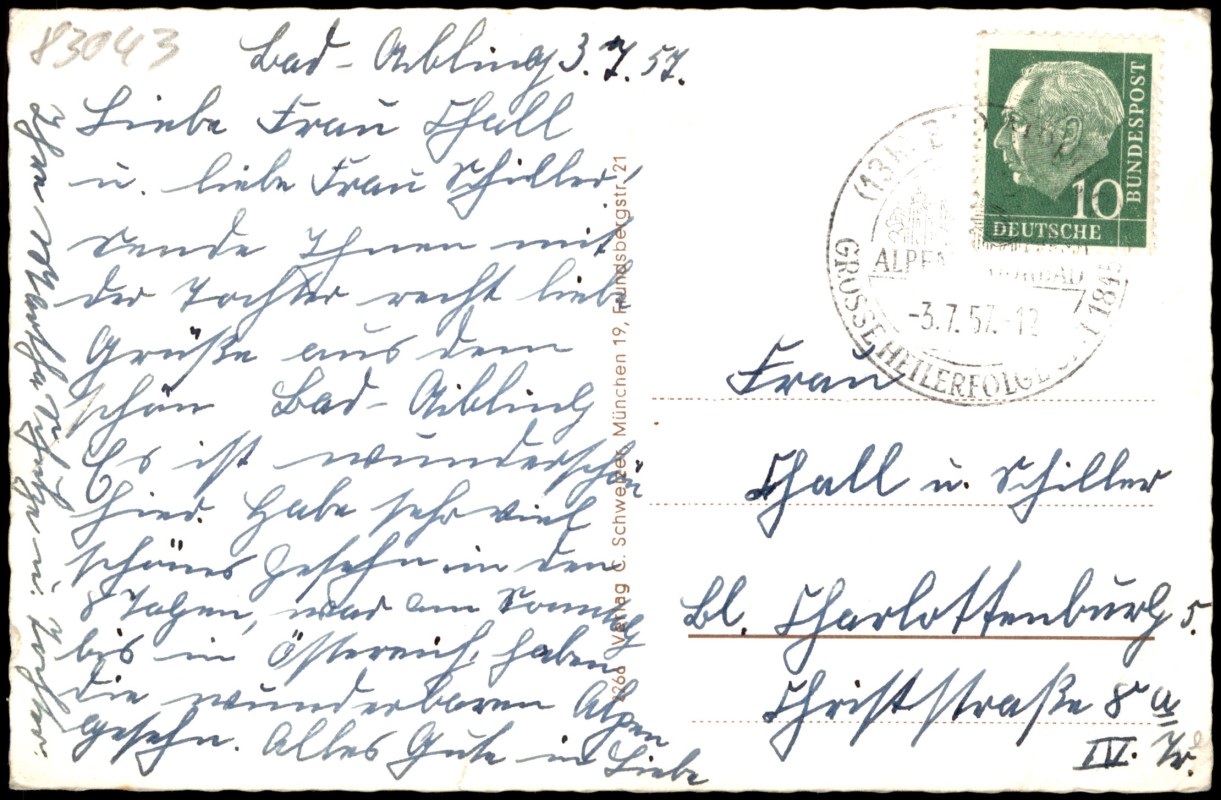 83043
Bad-Aibling 3.7.57.
Liebe Frau Thall
u. liebe Frau Schiller!
sende Ihnen mit
der Tochter recht liebe
Grüße aus dem
schön Bad-Aibling
Es ist wunderschön
hier. Habe sehr viel
schönes Gesehn in den
8 Tagen, war am Sonntag
bis in Östereich, haben
die wunderbaren Alpen
gesehn. Alles Gute in Liebe
Ihre Martha u. Tochter
9266 Verlag C. Schweizer, München 19, Frundsbergstr. 21
DEUTSCHE BUNDESPOST
10
(13b)
ALPEN
-3.7.57.-12
GROSSE HEILERFOLGE
(1845
Frau
Thall u. Schiller
Bl. Charlottenburg 5.
Christstraße 8 a
IV. Tr.